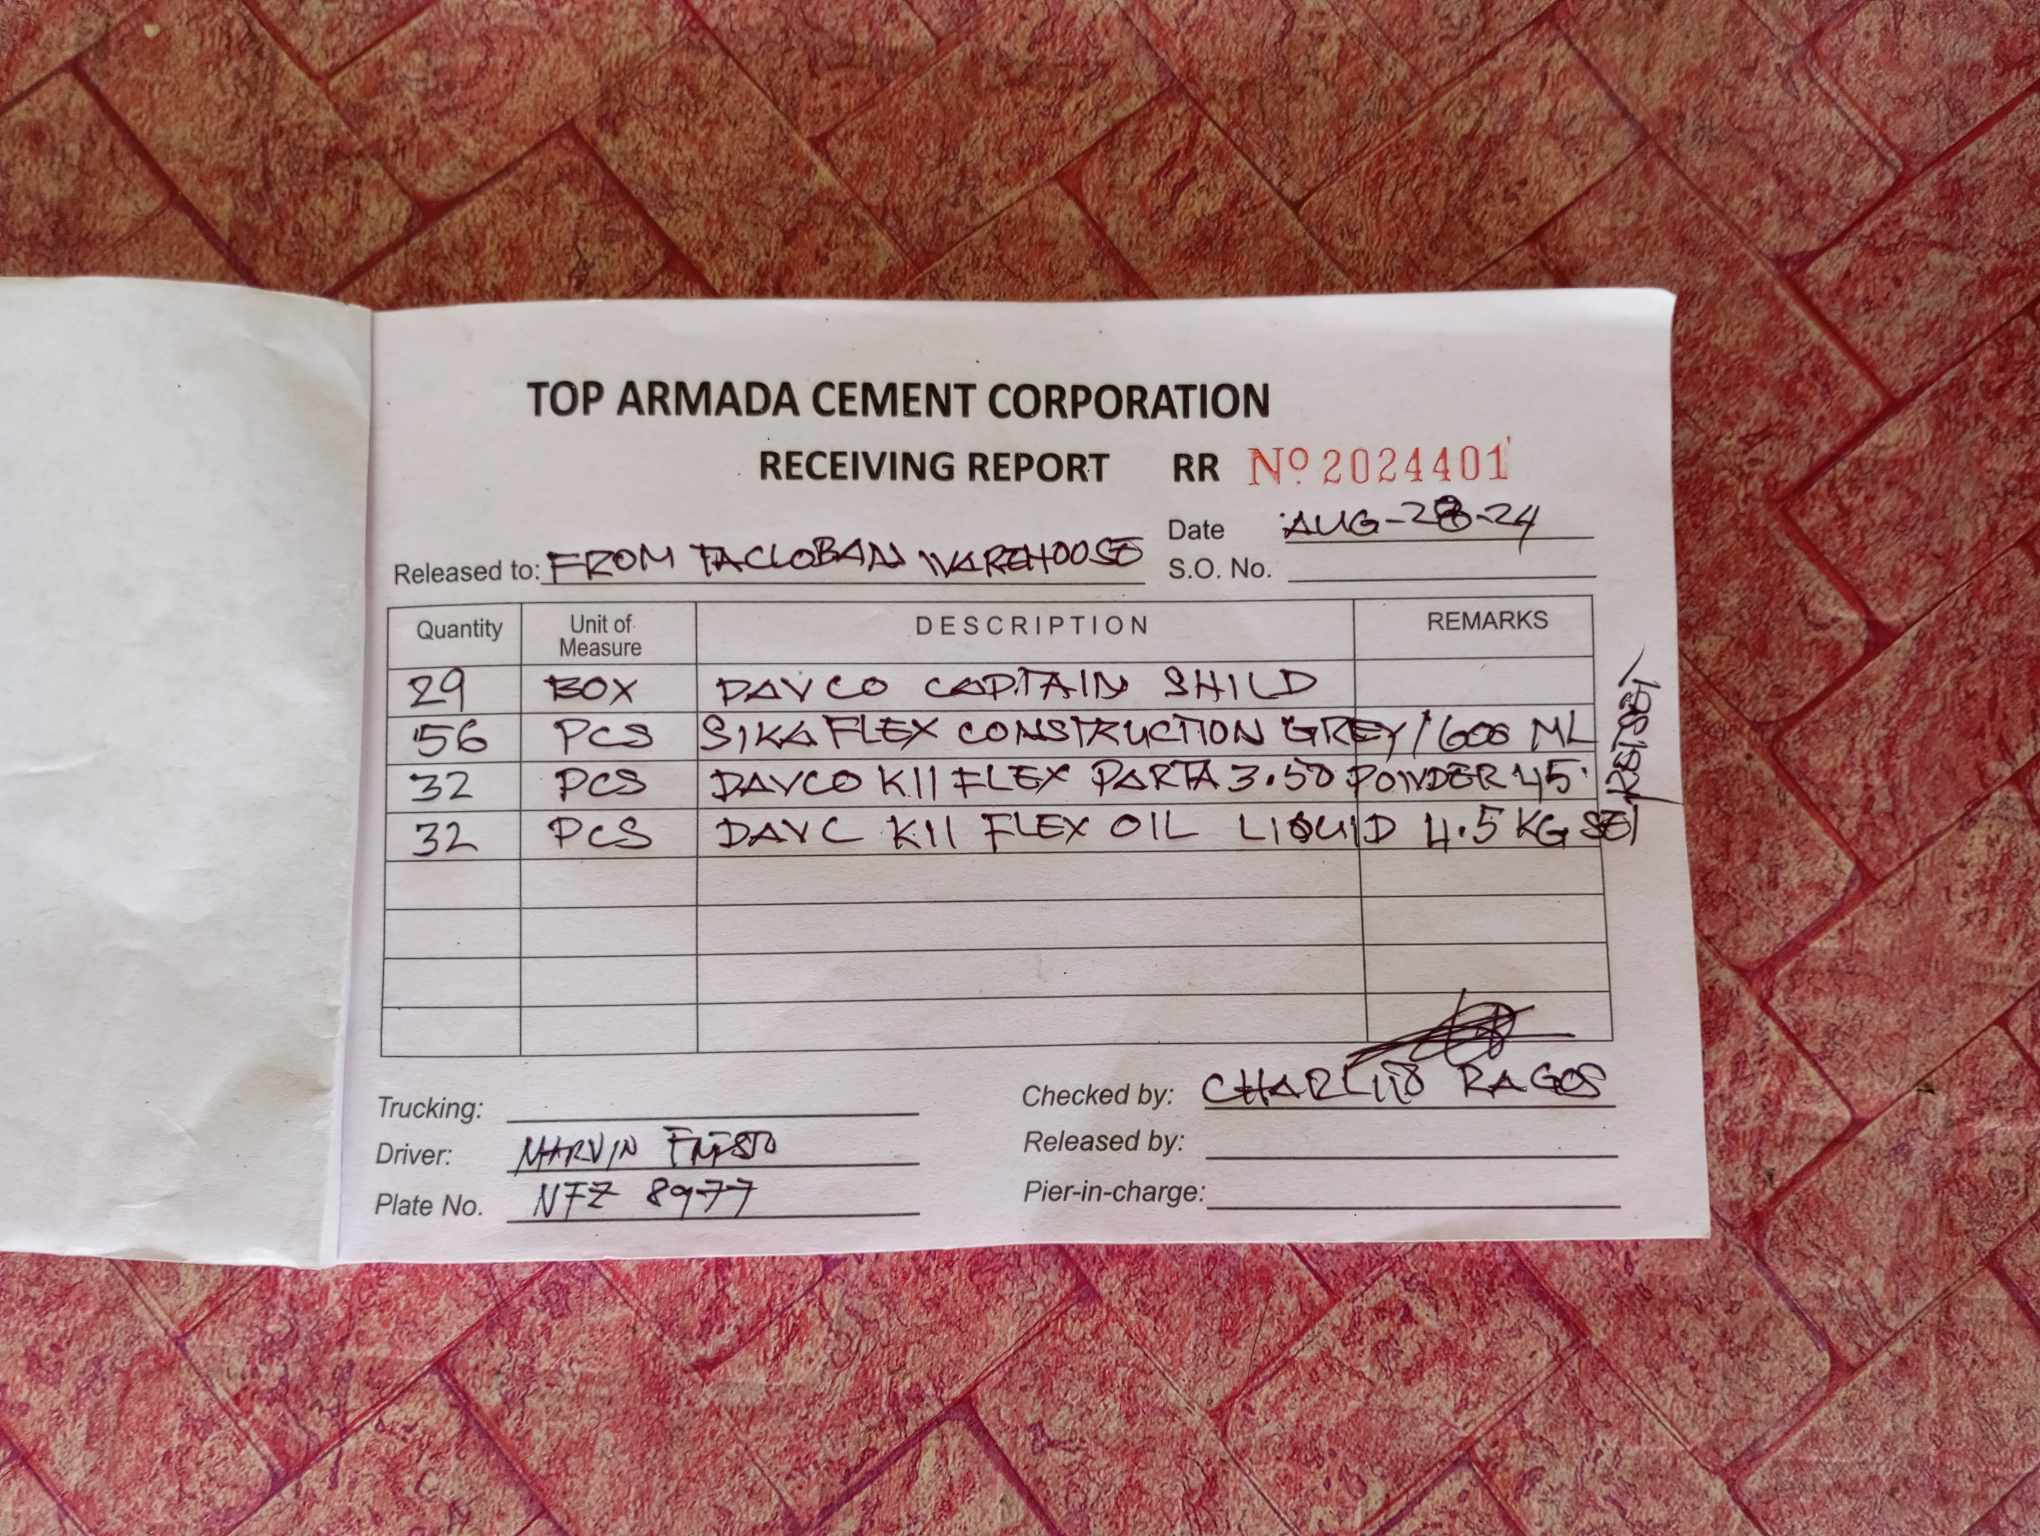 TOP ARMADA CEMENT CORPORATION
RECEIVING REPORT RR Nº 2024401
Date AUG-28-24
Released to: FROM TACLOBAN WAREHOOSE
S.O. No.
Quantity Unit of Measure DESCRIPTION REMARKS
29 BOX DAVCO CAPTAIN SHILD
56 PCS SIKAFLEX CONSTRUCTION GREY/600 ML
32 PCS DAVCO K11 FLEX PARTA 3.50 POWDER 45
32 PCS DAVC K11 FLEX OIL LIQUID 4.5 KG SET
Trucking:
Checked by: RAGOS
Driver: MARVIN
Released by:
Plate No. NFZ 8977
Pier-in-charge: